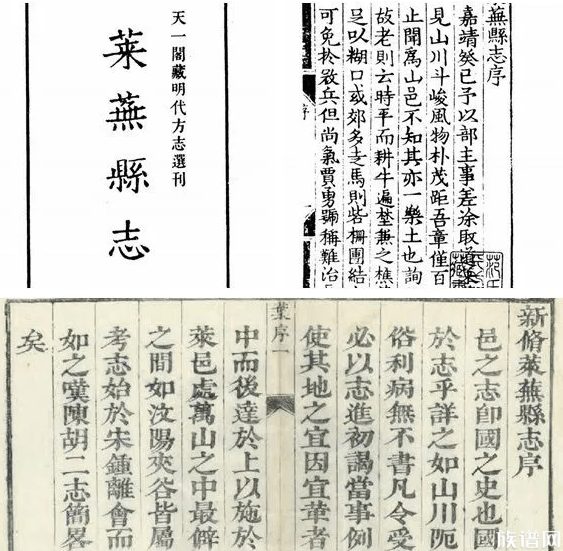 天一閣藏明代方志選刊
萊蕪縣志
蕪縣志序
嘉靖癸巳予以部主事差徐取道
見山川斗峻風物朴茂距吾章僅百
止聞爲山邑不知其亦一樂土也詢
故老則云時平而耕牛遍埜兼之樵
足以糊口或郊多走馬則砦柵團結
可免於敓兵但尚氣賈勇號稱難治
序
新脩萊蕪縣志序
邑之志卽國之史也國
於志乎詳之如山川阨
俗利病無不書凡令受
必以志進初謁當事例
使其地之宜因宜革者
葉序一
中而後達於上以施於
萊邑處萬山之中最僻
之間如汶陽夾谷皆屬
考志始於宋鍾離會而
如之嘆陳胡二志簡畧
矣
族谱网